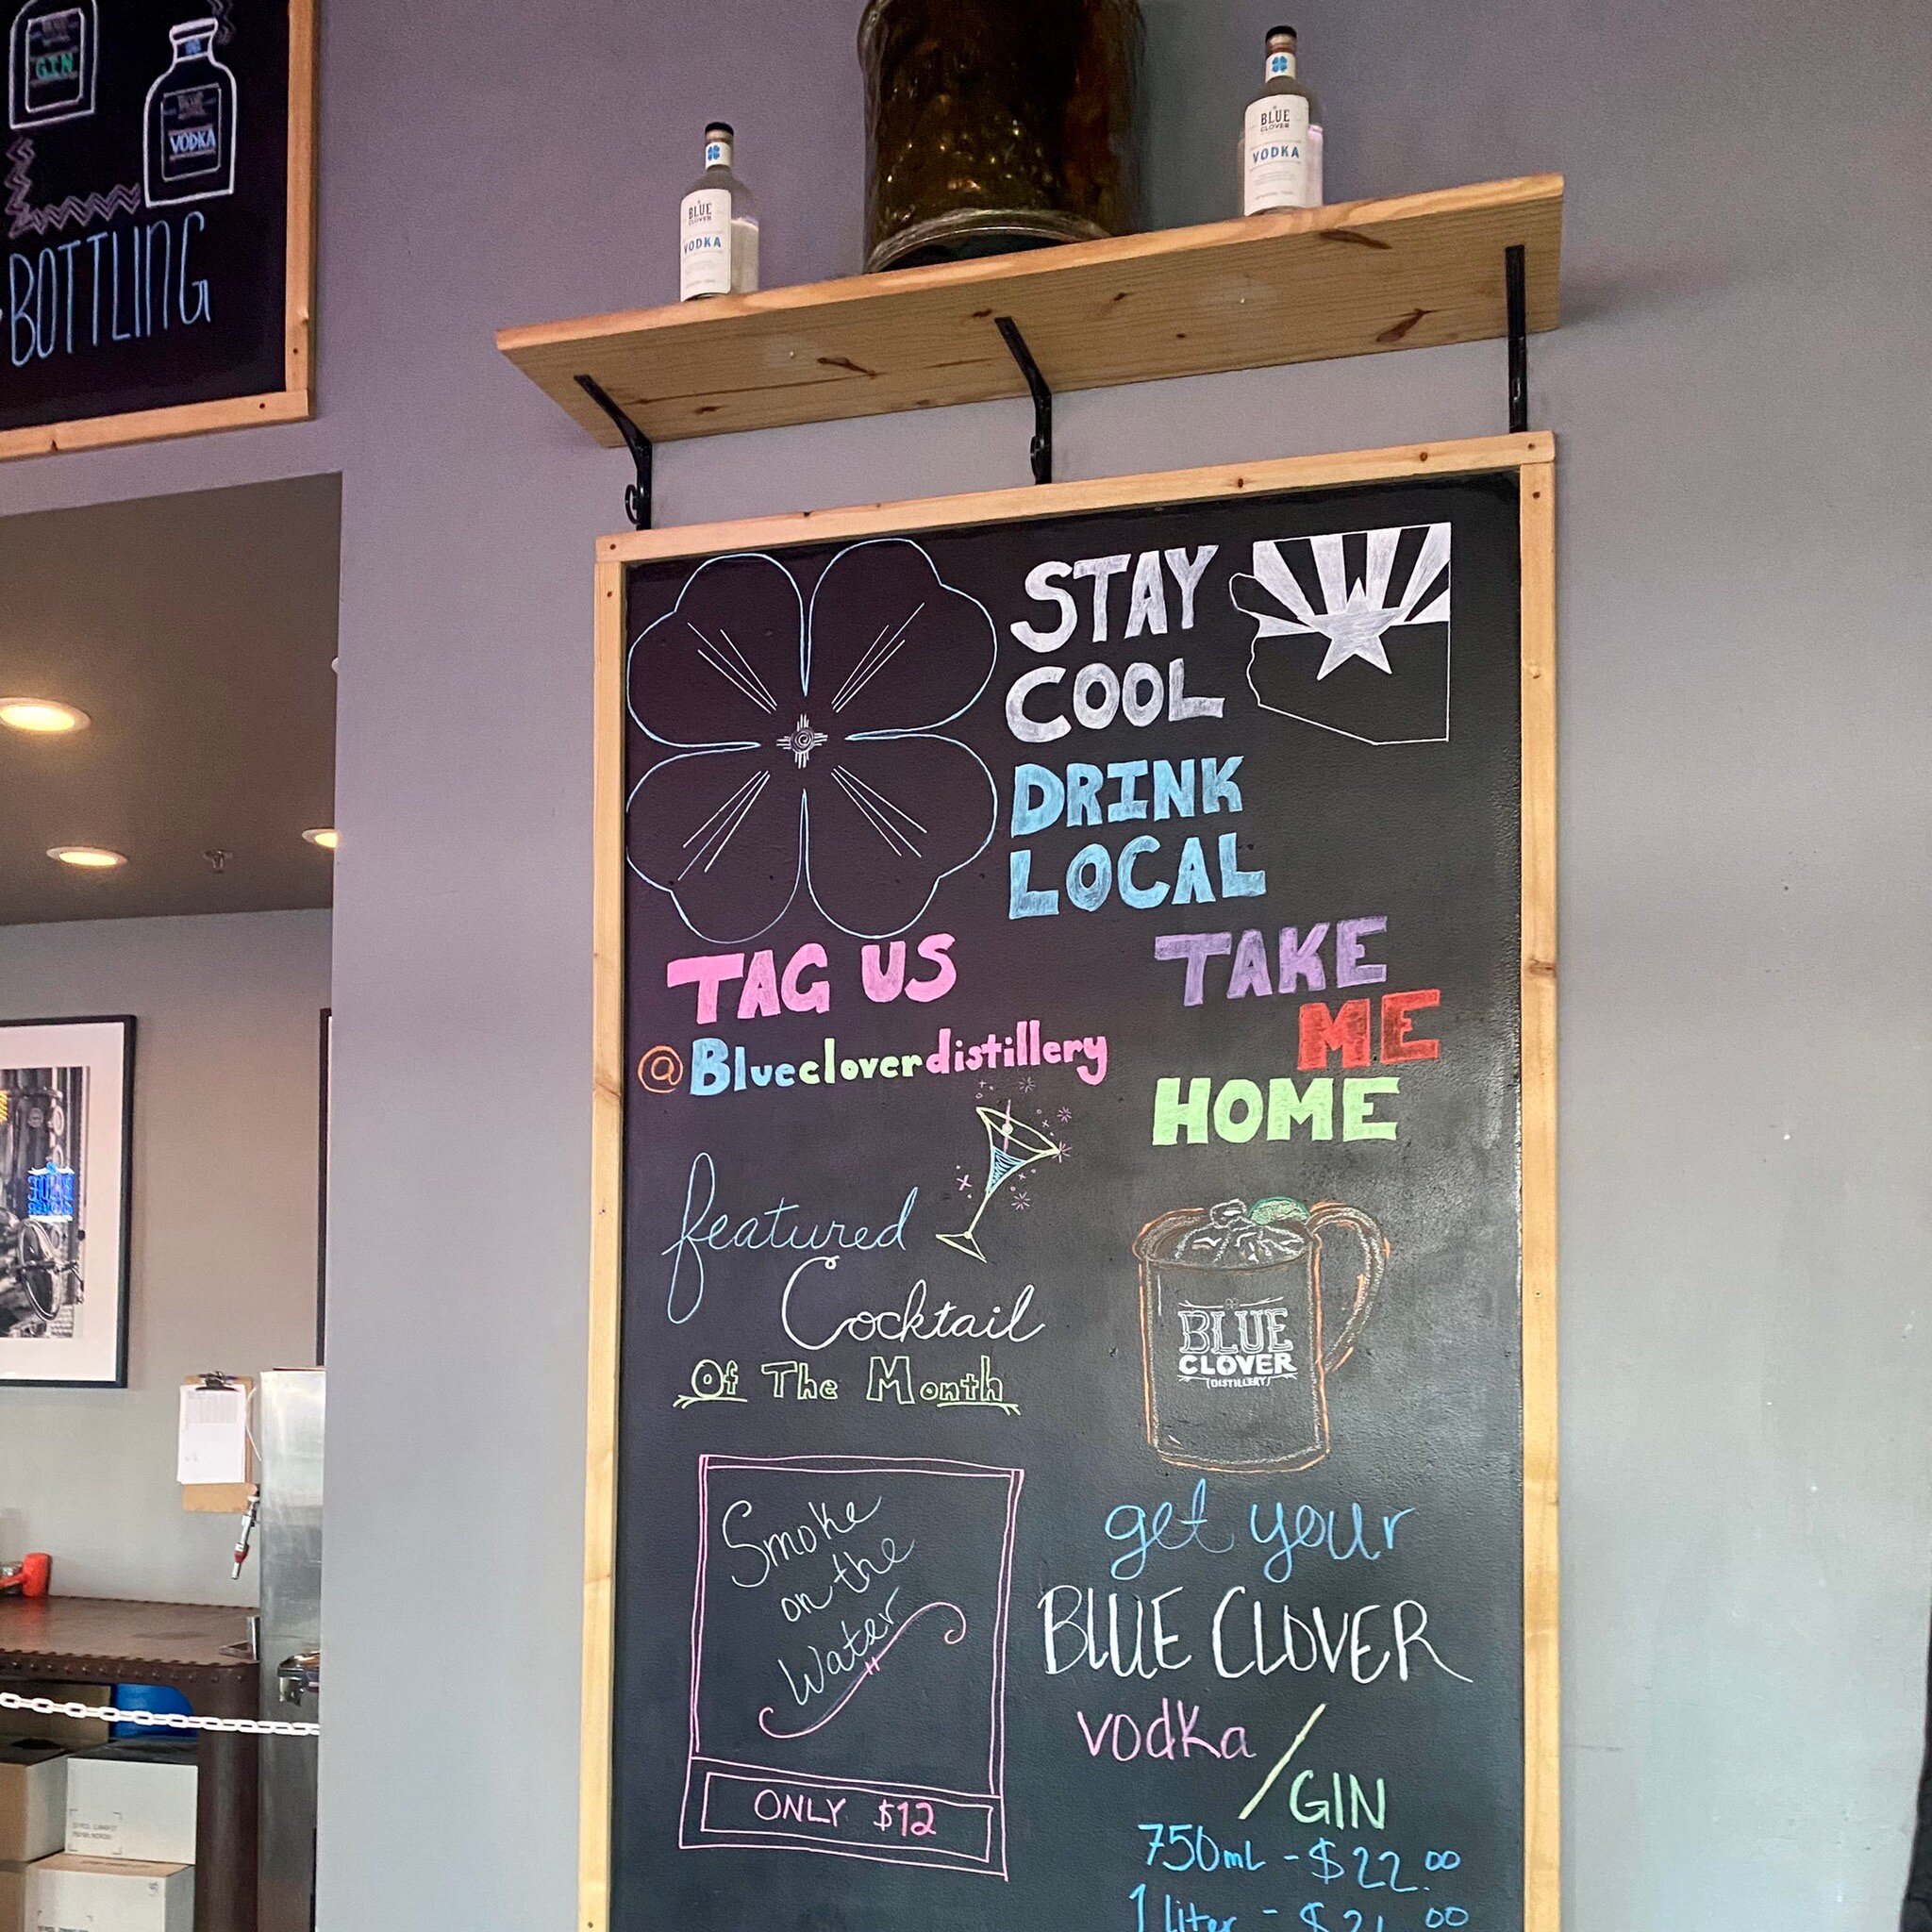 GIN
BLUE
VODKA
BOTTLING
BLUE
CLOVER
VODKA
BLUE
CLOVER
VODKA
STAY
COOL
DRINK
LOCAL
TAG US
@Bluecloverdistillery
TAKE
ME
HOME
featured
Cocktail
Of The Month
Smoke
on the
Water
ONLY $12
BLUE
CLOVER
(DISTILLERY)
get your
BLUE CLOVER
vodka/GIN
750mL - $22.00
1 liter - $